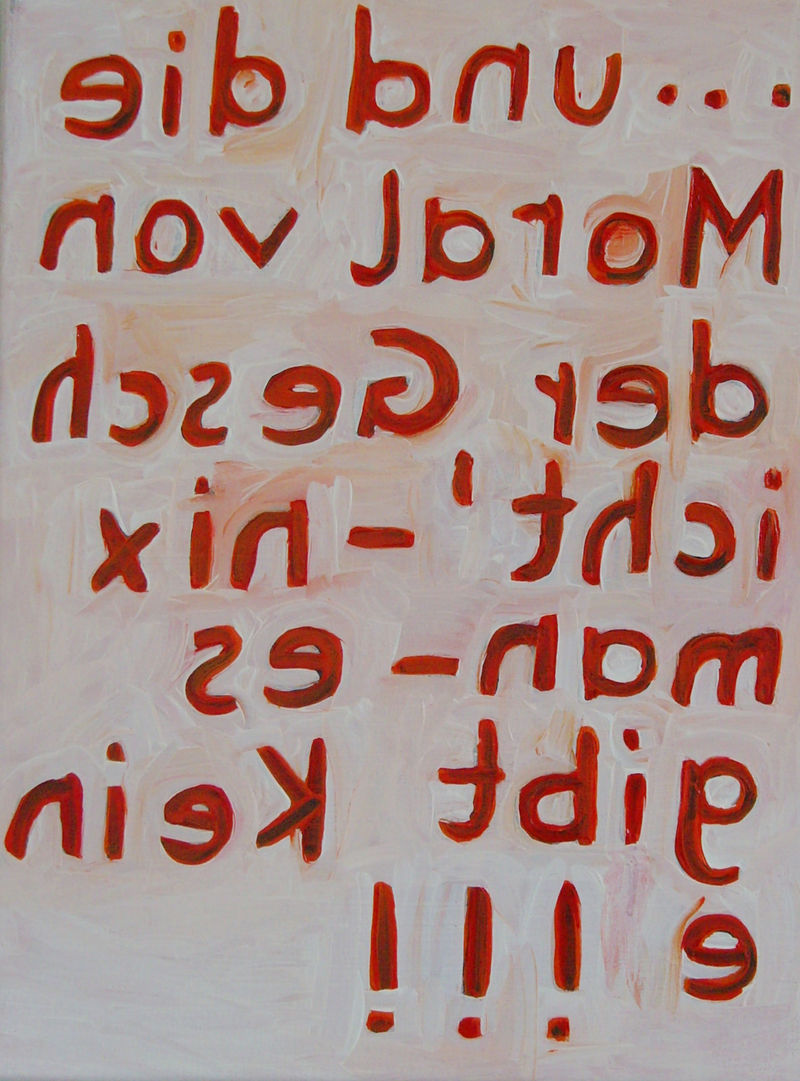 ...und die
Moral von
der Gesch
icht'-nix
man-es
gibt Kein
e !!!